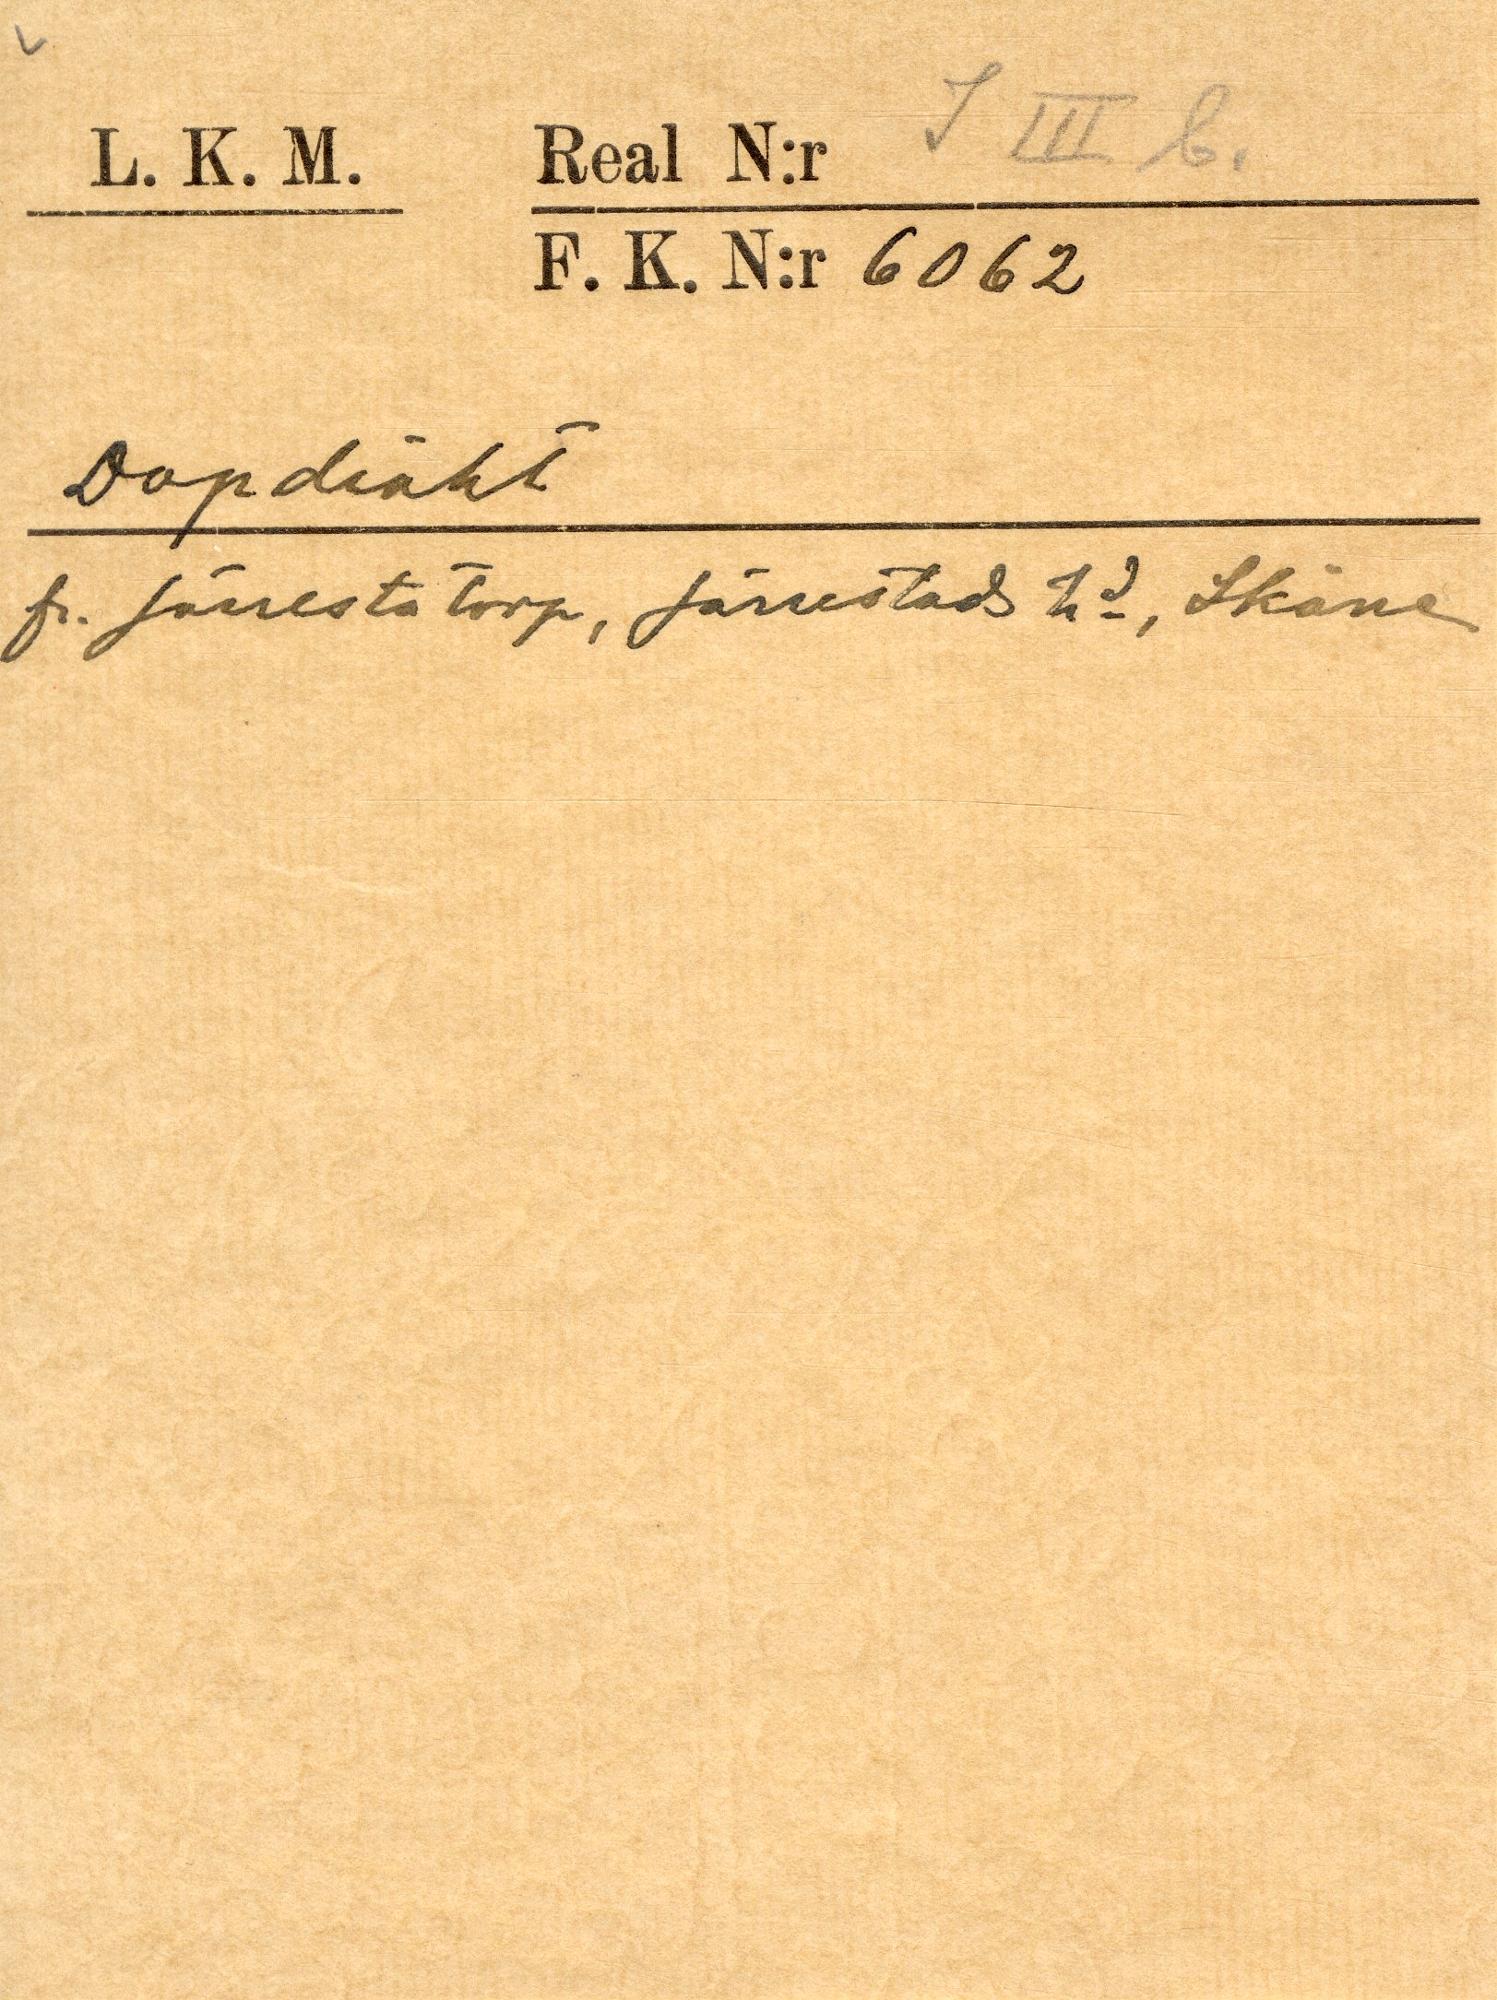 L. K. M. Real N:r J III b.
F. K. N:r 6062
Dopdräkt
fr. Järrestatorp, Järrestads hd, Skåne